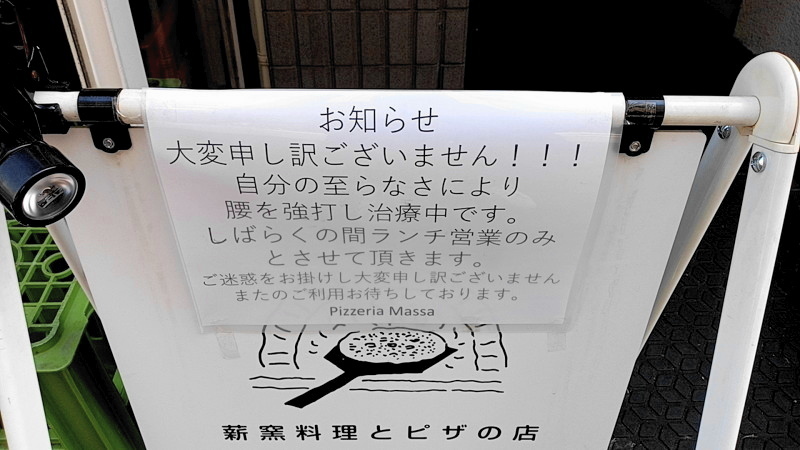 お知らせ
大変申し訳ございません！！！
自分の至らなさにより
腰を強打し治療中です。
しばらくの間ランチ営業のみ
とさせて頂きます。
ご迷惑をお掛けし大変申し訳ございません
またのご利用お待ちしております。
Pizzeria Massa
薪窯料理とピザの店